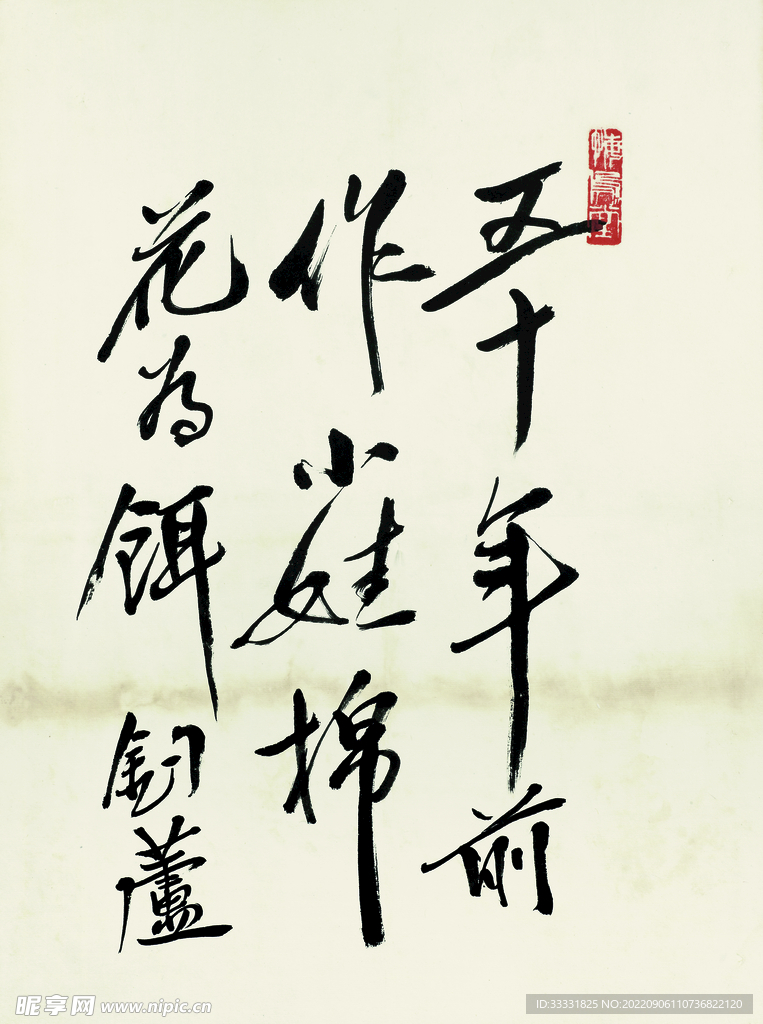 五十年前
作小娃棉
花为饵钓芦
昵享网 www.nipic.cn
ID:33331825 NO:20220906110736822120